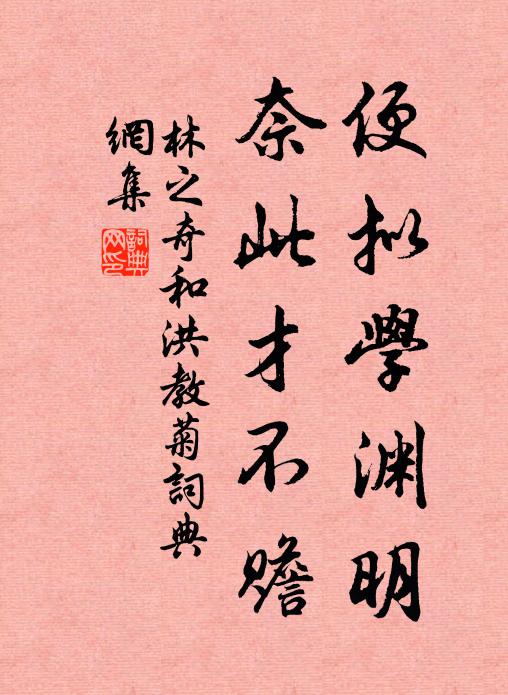 便拟學渊明
奈此才不贍
林之奇和洪教菊詞典
網集
詞典網印